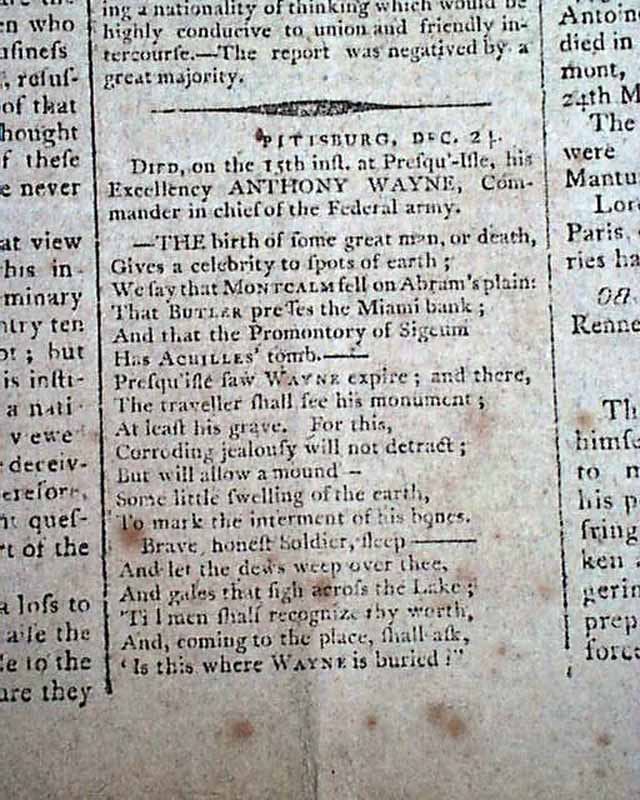 en who
ufineſs
, refuſ-
of that
hought
f theſe
e never
at view
his in-
minary
ntry ten
ot ; but
is inſti-
a nati-
deceiv-
erefore,
nt queſ-
rt of the
a loſs to
aiſe the
le to the
are they
ing a nationality of thinking which would be
highly conducive to union and friendly in-
tercourſe.—The report was negatived by a
great majority.
PITTSBURG, DEC. 24.
DIED, on the 15th inſt. at Preſqu'-Iſle, his
Excellency ANTHONY WAYNE, Com-
mander in chief of the Federal army.
—THE birth of ſome great man, or death,
Gives a celebrity to ſpots of earth ;
We ſay that MONTCALM fell on Abram's plain:
That BUTLER preſſes the Miami bank ;
And that the Promontory of Sigeum
Has ACHILLES' tomb.——
Preſqu'iſle ſaw WAYNE expire ; and there,
The traveller ſhall ſee his monument ;
At leaſt his grave. For this,
Corroding jealouſy will not detract ;
But will allow a mound—
Some little ſwelling of the earth,
To mark the interment of his bones.
Brave, honeſt ſoldier, ſleep———
And let the dews weep over thee,
And gales that ſigh acroſs the Lake ;
'Till men ſhall recognize thy worth,
And, coming to the place, ſhall aſk,
'Is this where WAYNE is buried ?"
Antoin
died in
mont,
24th M
The
were
Mantu
Lor
Paris,
ries ha
Renne
Th
himſe
to m
his p
fring
ken a
gerin
prep
force